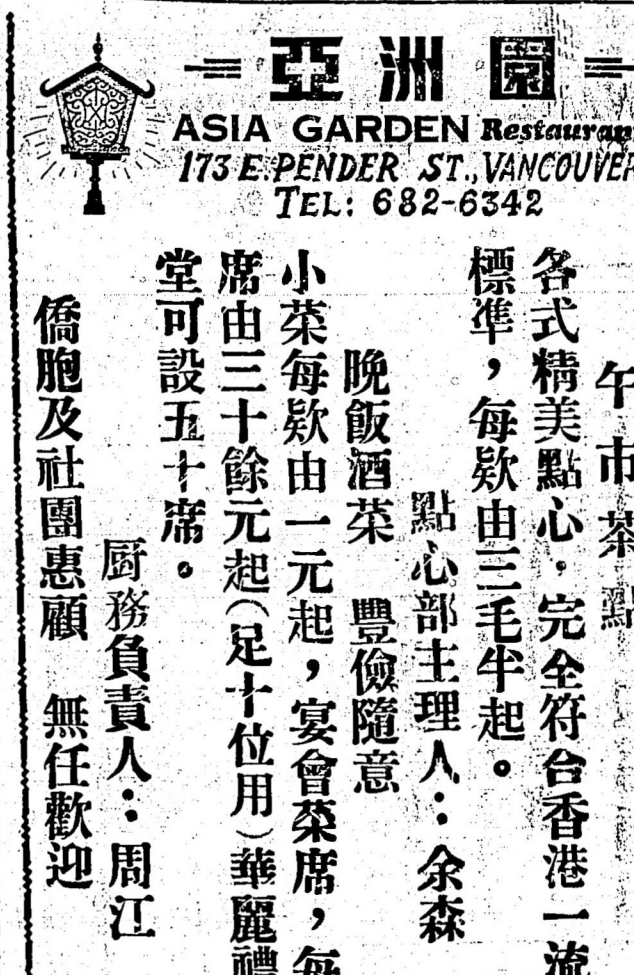 亞洲園
ASIA GARDEN Restauran
173 E. PENDER ST., VANCOUVER
TEL: 682-6342
午市茶點
各式精美點心，完全符合香港一流
標準，每欵由三毛半起。
點心部主理人：余森
晚飯酒菜　豐儉隨意
小菜每欵由一元起，宴會菜席，每
席由三十餘元起（足十位用）華麗禮
堂可設五十席。
廚務負責人：周江
僑胞及社團惠顧　無任歡迎